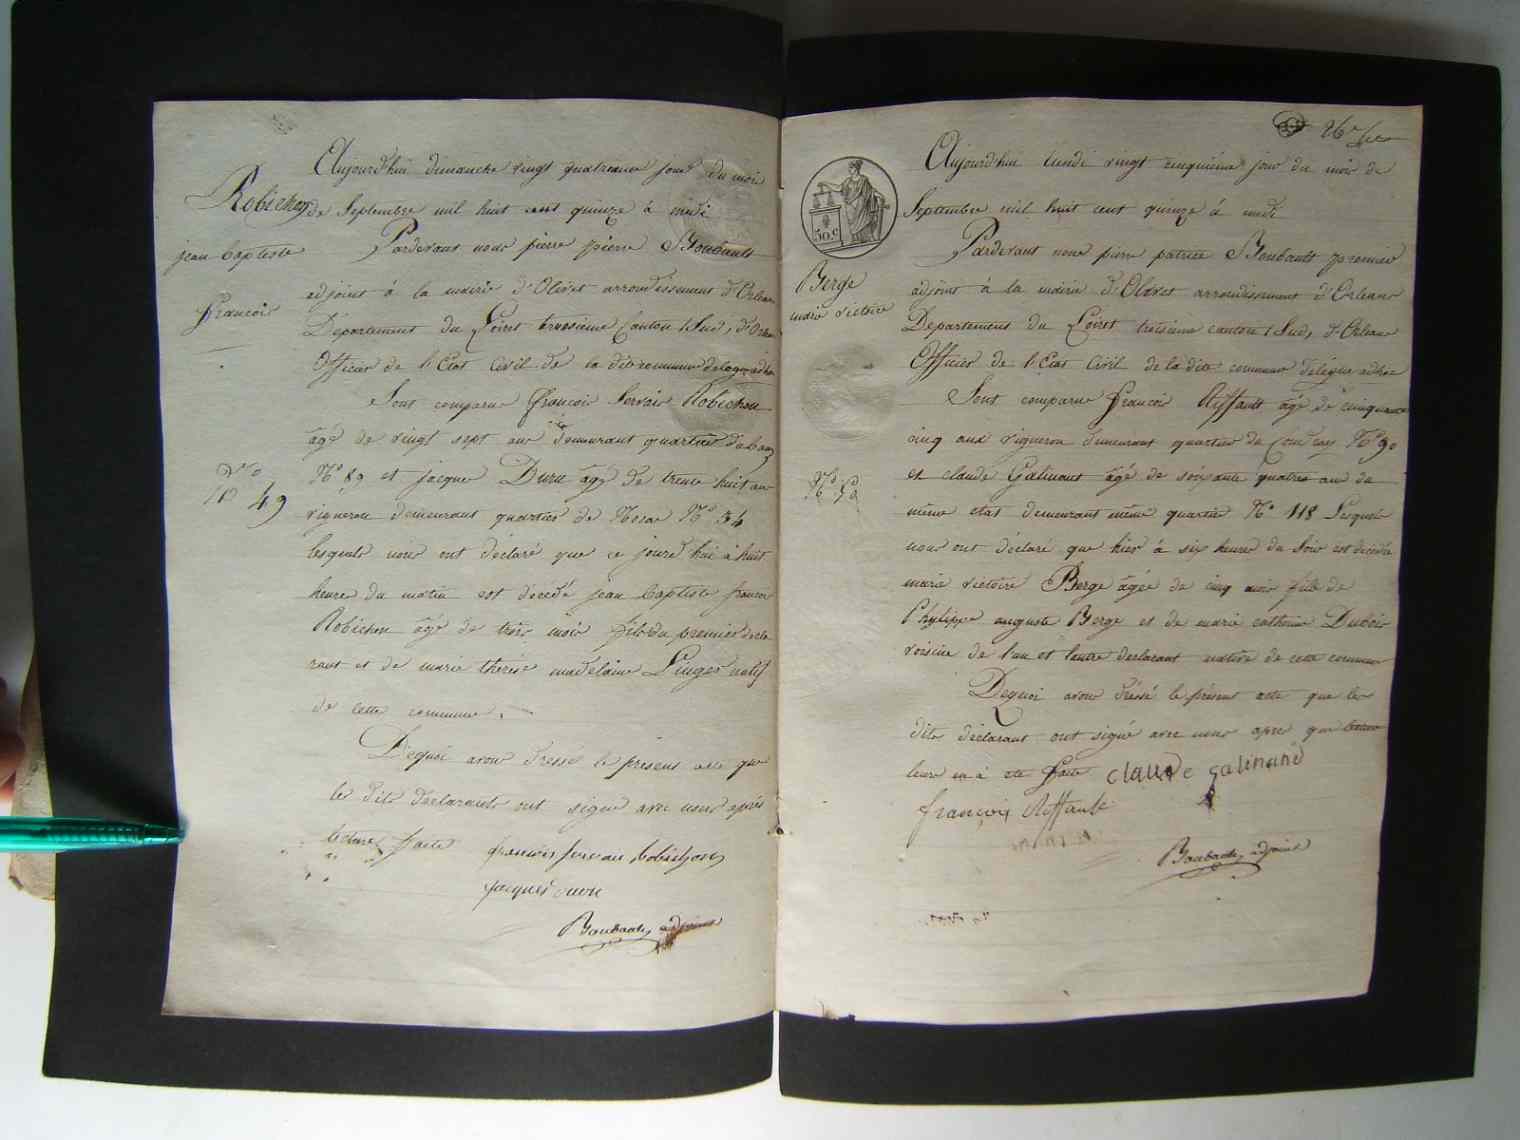 Robichon
jean baptiste
francois
Nº 49
Aujourd'hui dimanche vingt quatrieme jour du mois
de Septembre mil huit cent quinze à midi
Pardevant nous pierre pierre Boubault
adjoint à la mairie d'Olivet arrondissement d'Orleans
Departement du Loiret troisieme Canton Sud, d'Orleans
Officier de l'Etat Civil de la dite commune
Sont comparu francois Servais Robichon
agé de vingt sept ans demeurant quartier du
Nº 89 et jacque Duru agé de trente huit ans
vigneron demeurant quartier de Nº 34
lesquels nous ont déclaré que ce jourd'hui à huit
heure du matin est décédé jean baptiste francois
Robichon agé de trois mois fils du premier decla
rant et de marie therese madelaine Linger natif
de cette commune.
Dequoi avons dressé le présent acte que
les dits declarants ont signé avec nous après
lecture faite francois servais robichon
jacques duru
Boubault adjoint
26e
50 c.
Berge
marie victoire
Nº 50
Aujourd'hui lundi vingt cinquième jour du mois de
Septembre mil huit cent quinze à midi
Pardevant nous pierre patrice Boubault premier
adjoint à la mairie d'Olivet arrondissement d'Orleans
Departement du Loiret troisieme canton Sud, d'Orleans
Officier de l'Etat Civil de la dite commune délégué adhoc
Sont comparu francois Riffault agé de cinquante
cinq ans vigneron demeurant quartier du Coudray Nº 90
et claude Galinant agé de soixante quatre ans du
même etat demeurant même quartier Nº 118 Lesquels
nous ont déclaré que hier à six heures du Soir est décédée
marie victoire Berge agée de cinq mois fille de
Phylippe auguste Berge et de marie catherine Dubois
voisine de l'un et l'autre declarant native de cette commune
Dequoi avons dressé le présent acte que les
dits déclarant ont signé avec nous apres que lecture
leur en a été faite claude galinand
françois Riffault
Boubault adjoint